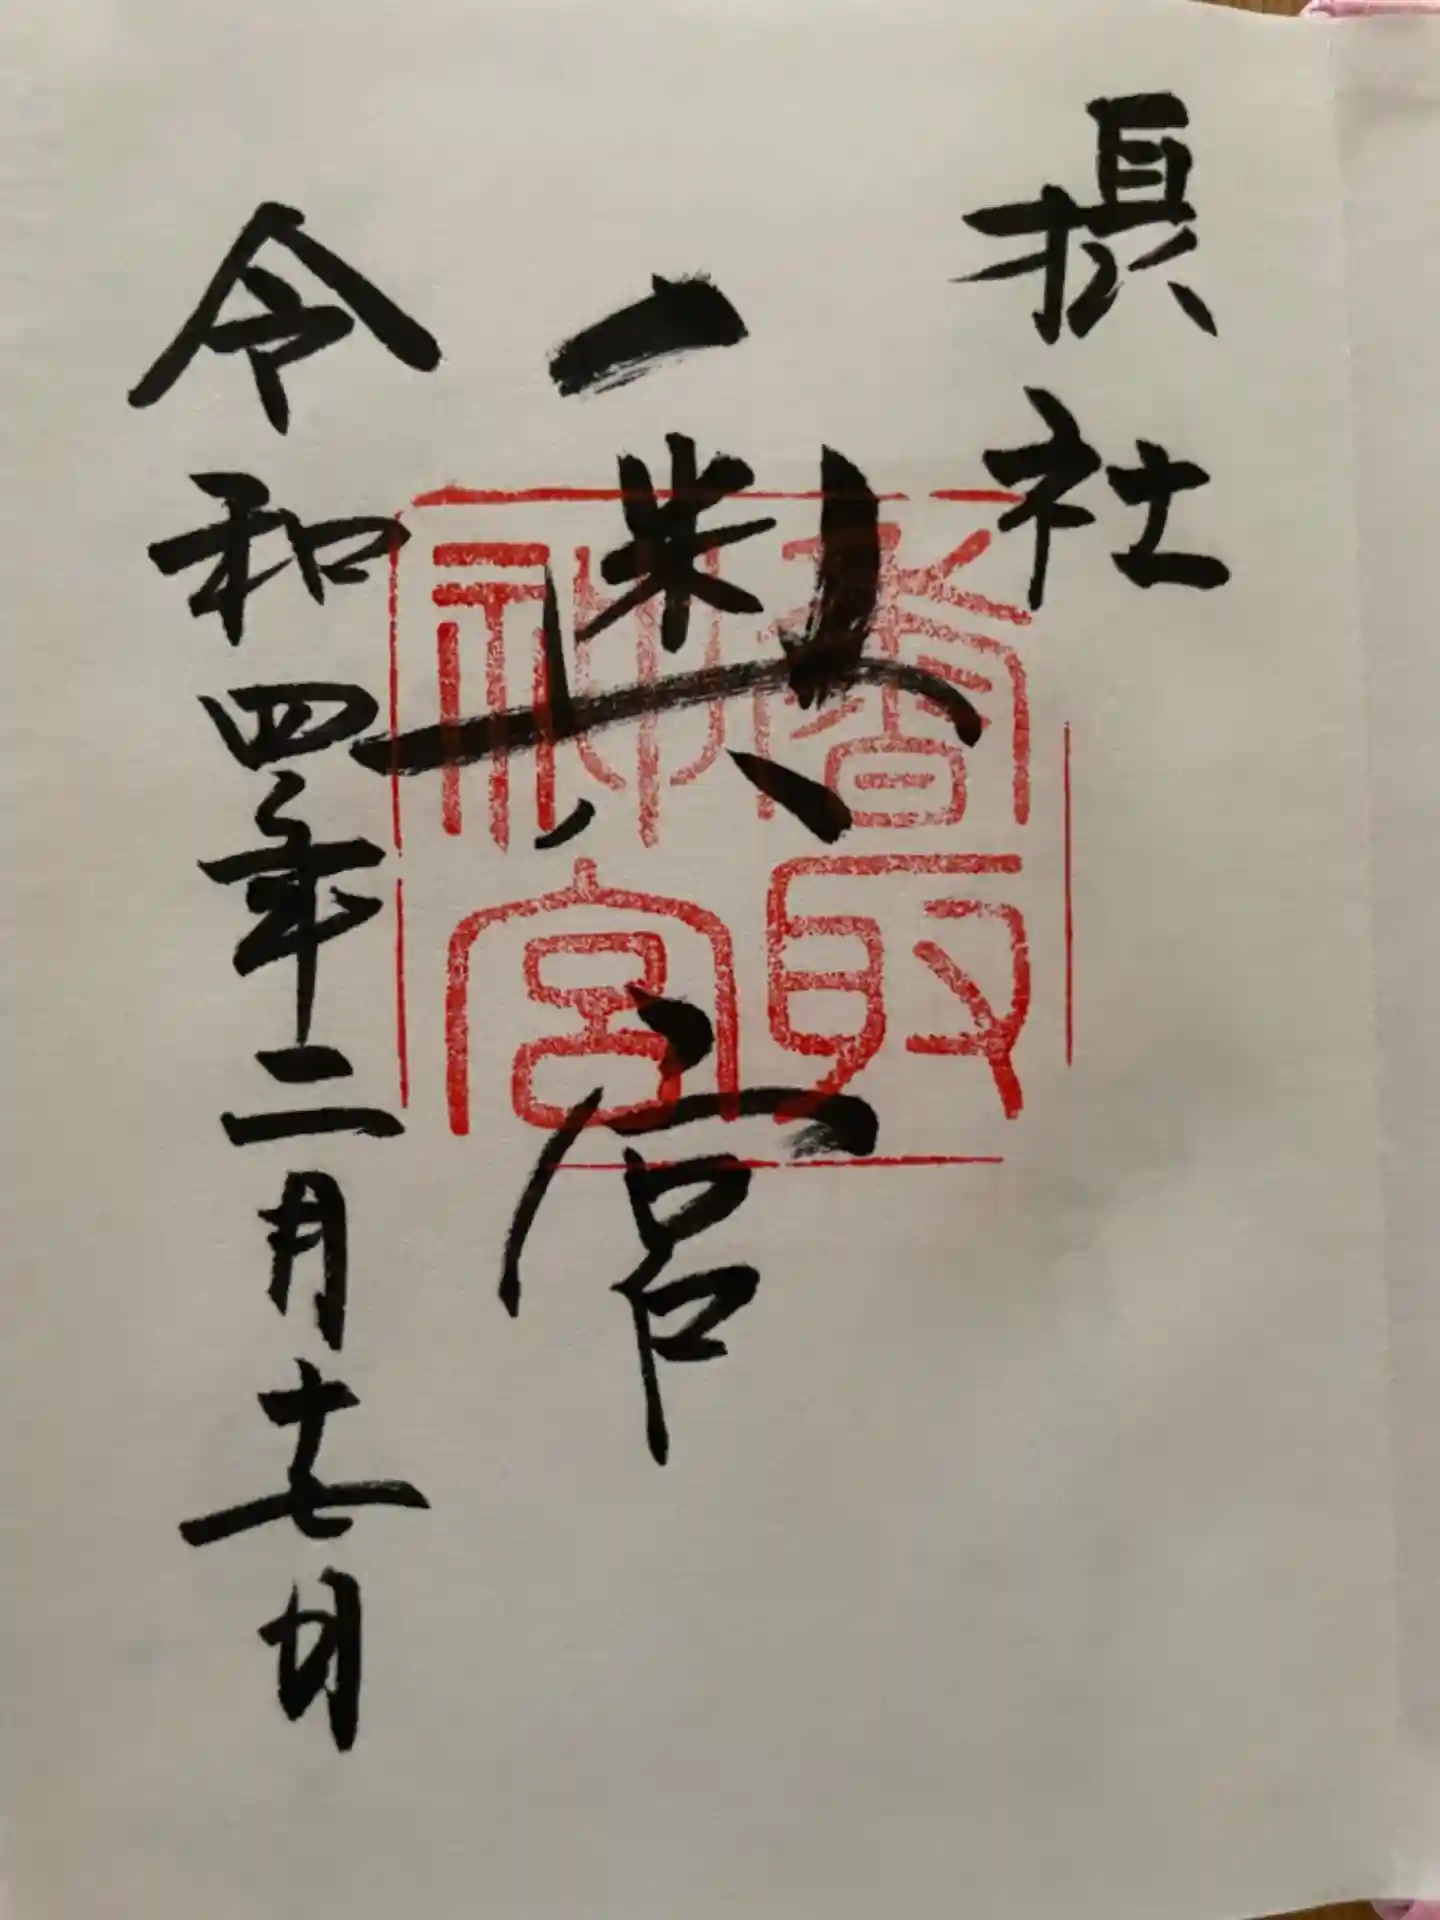 摂社
奥宮
令和四年二月十七日
香取
神宮